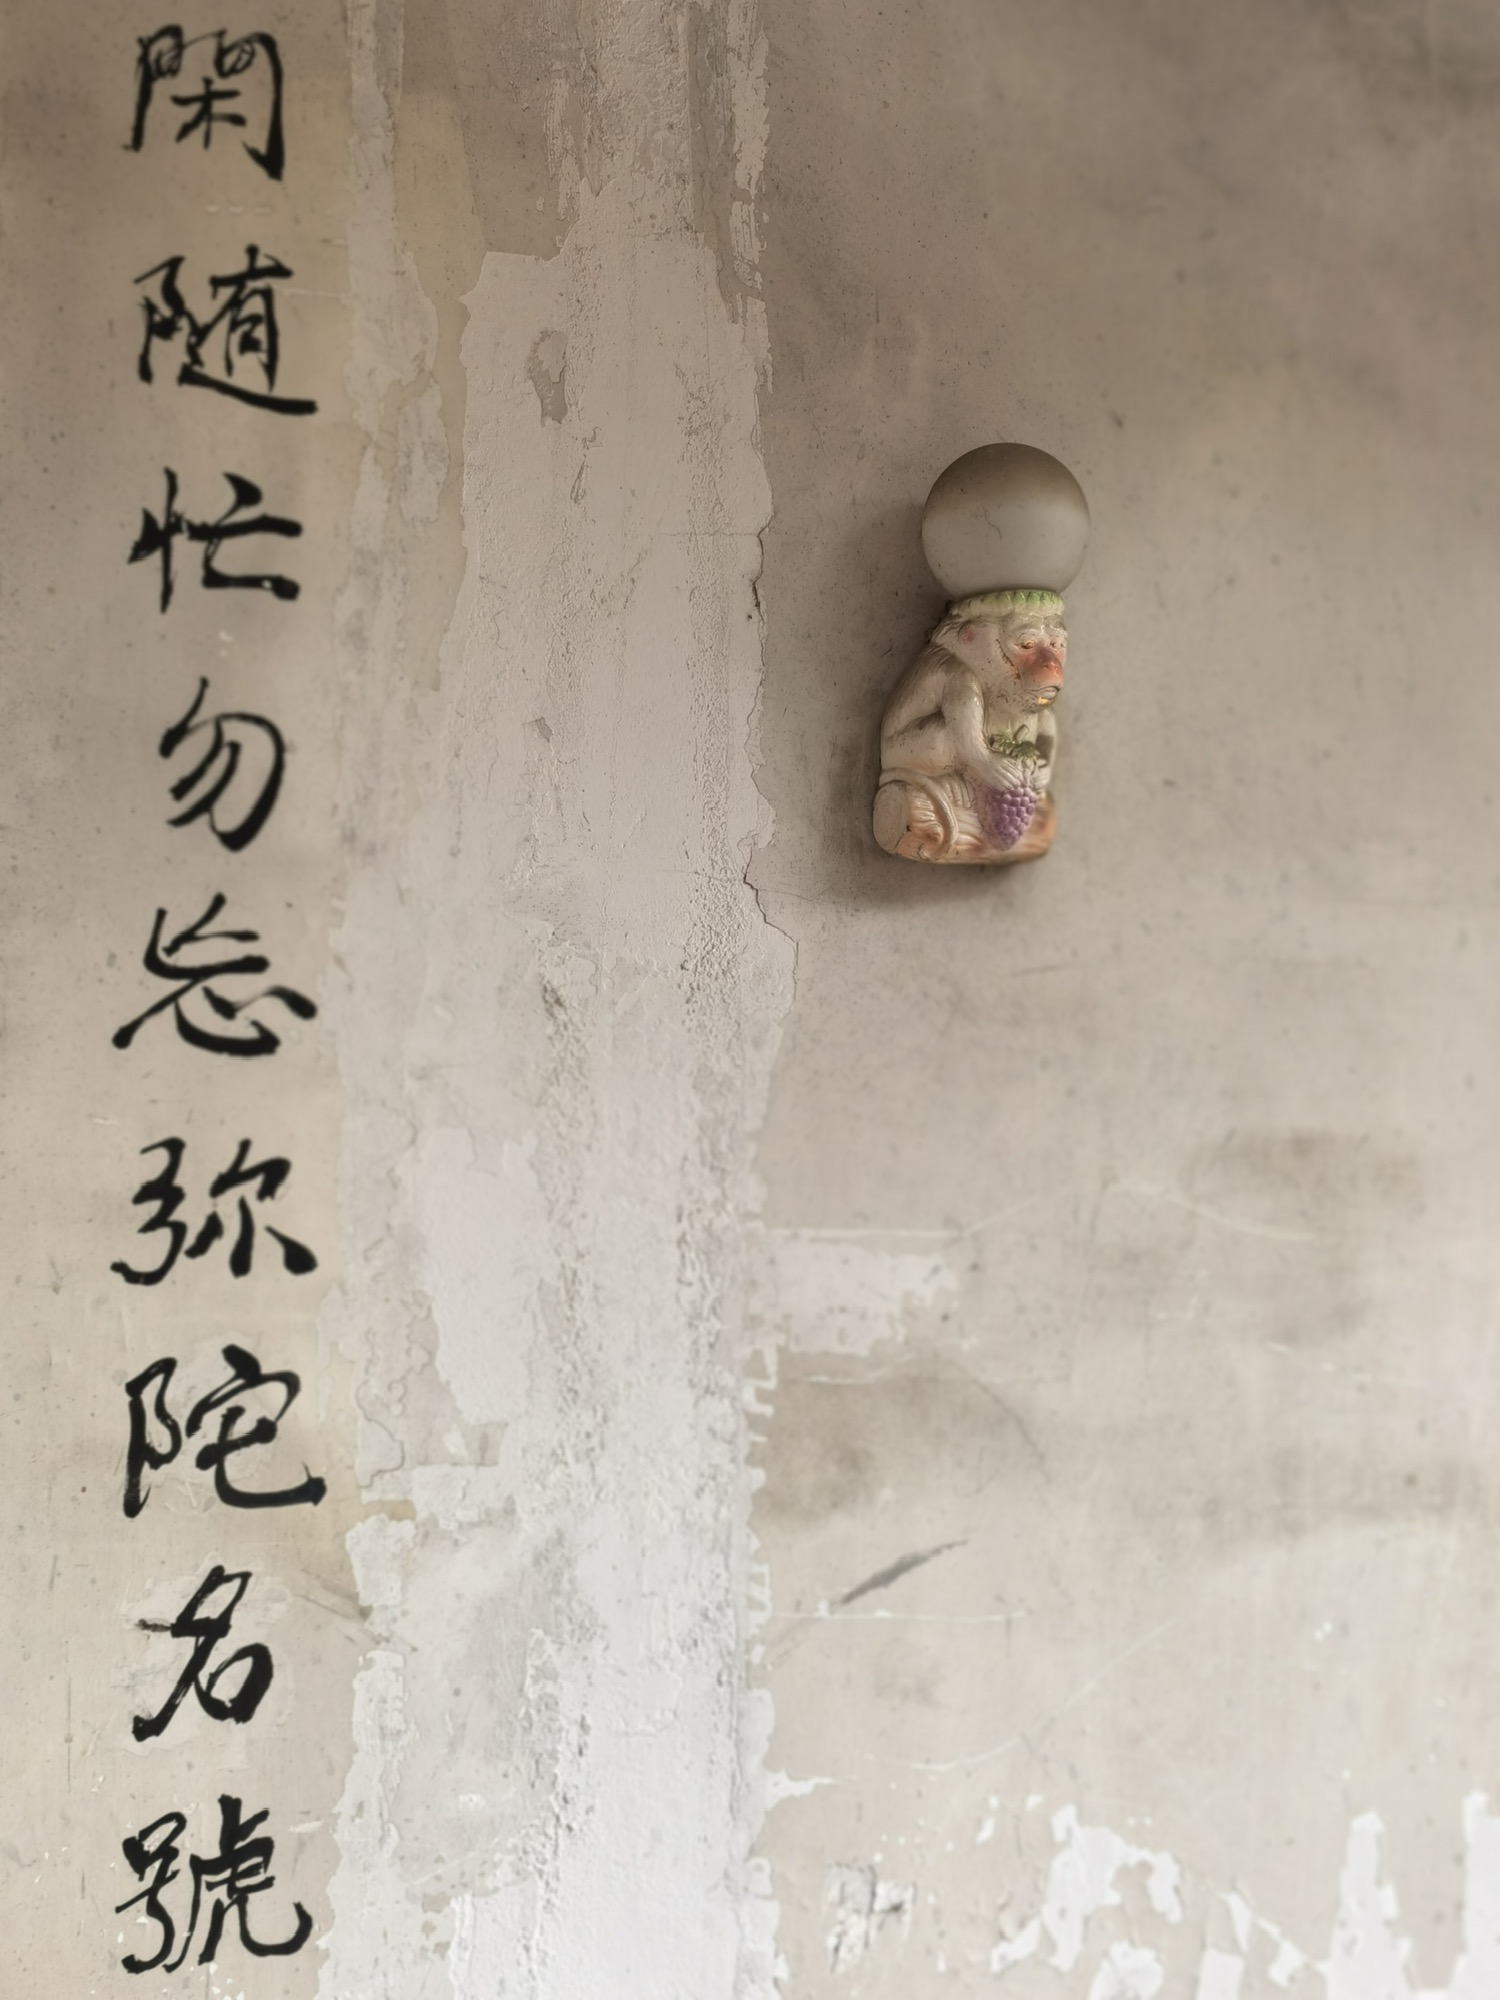 閑随忙勿忘弥陀名號